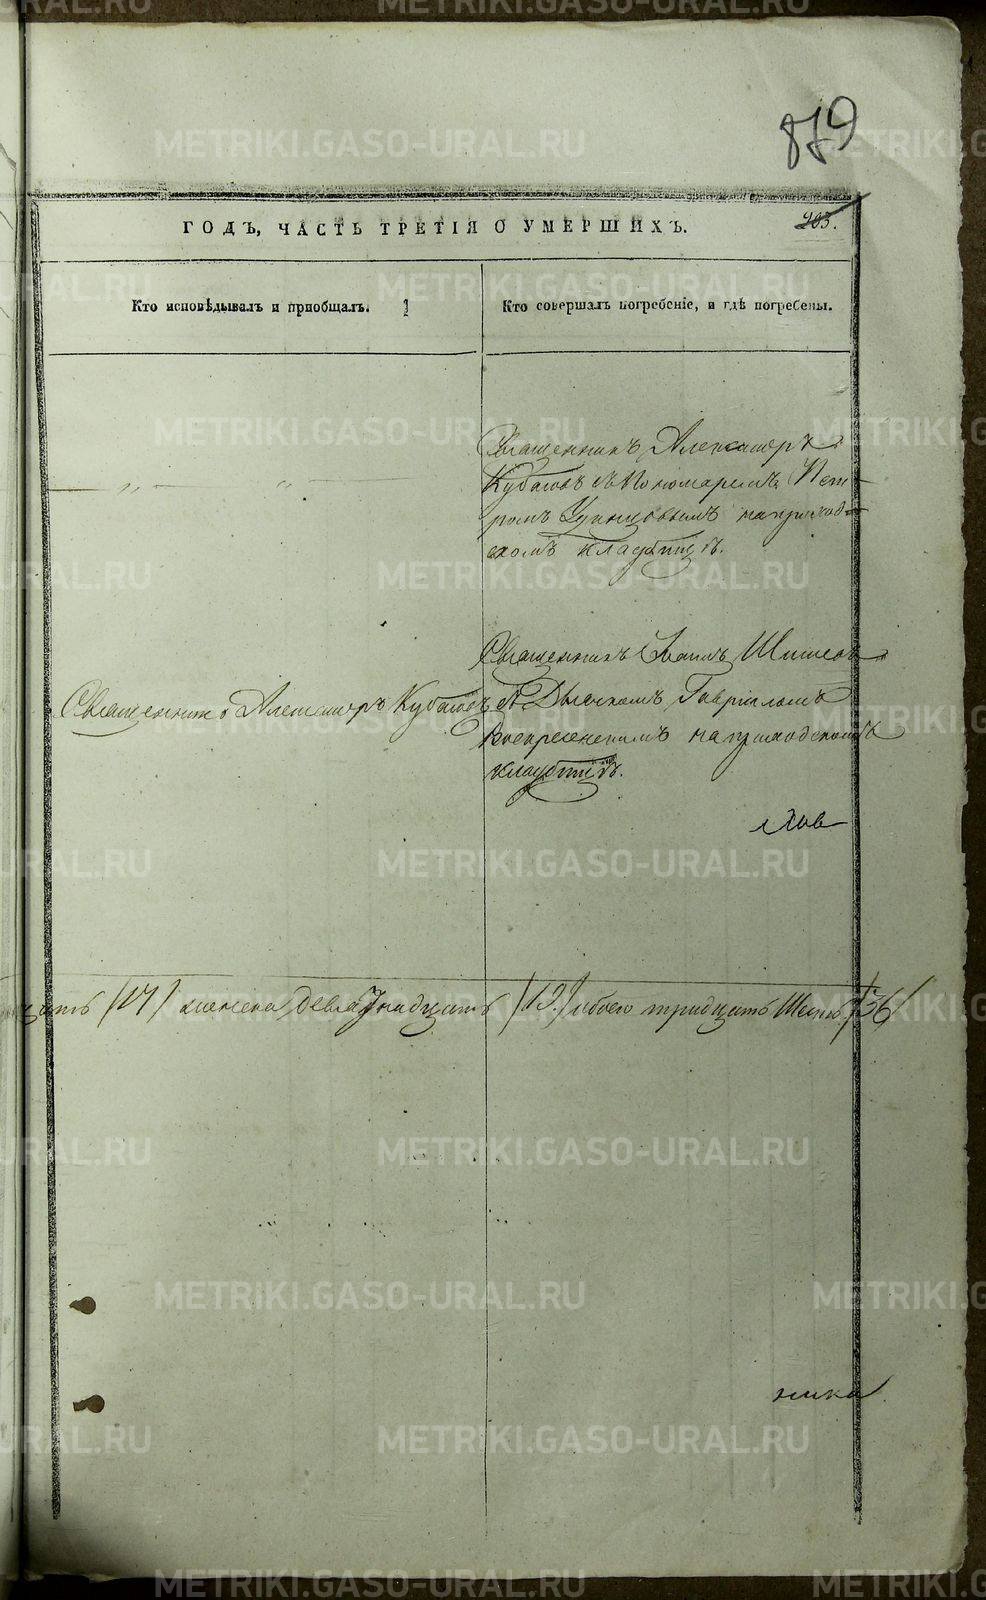 879
ГОДЪ, ЧАСТЬ ТРЕТІЯ О УМЕРШИХЪ.
203.
Кто исповѣдывалъ и пріобщалъ.
Кто совершалъ погребеніе, и гдѣ погребены.
Священникъ Александръ
Кубасовъ съ Пономаремъ Пет-
ромъ на приход-
скомъ кладбищѣ.
— „ — „ —
Священникъ Александръ Кубасовъ
Священникъ Іоаннъ Шишовъ
съ Дьячкомъ Гавріиломъ
Воскресенскимъ на приходскомъ
кладбищѣ.
цать /17/ женска Девятнадцать /19./ обоего тридцать Шесть /36/
ника
METRIKI.GASO-URAL.RU